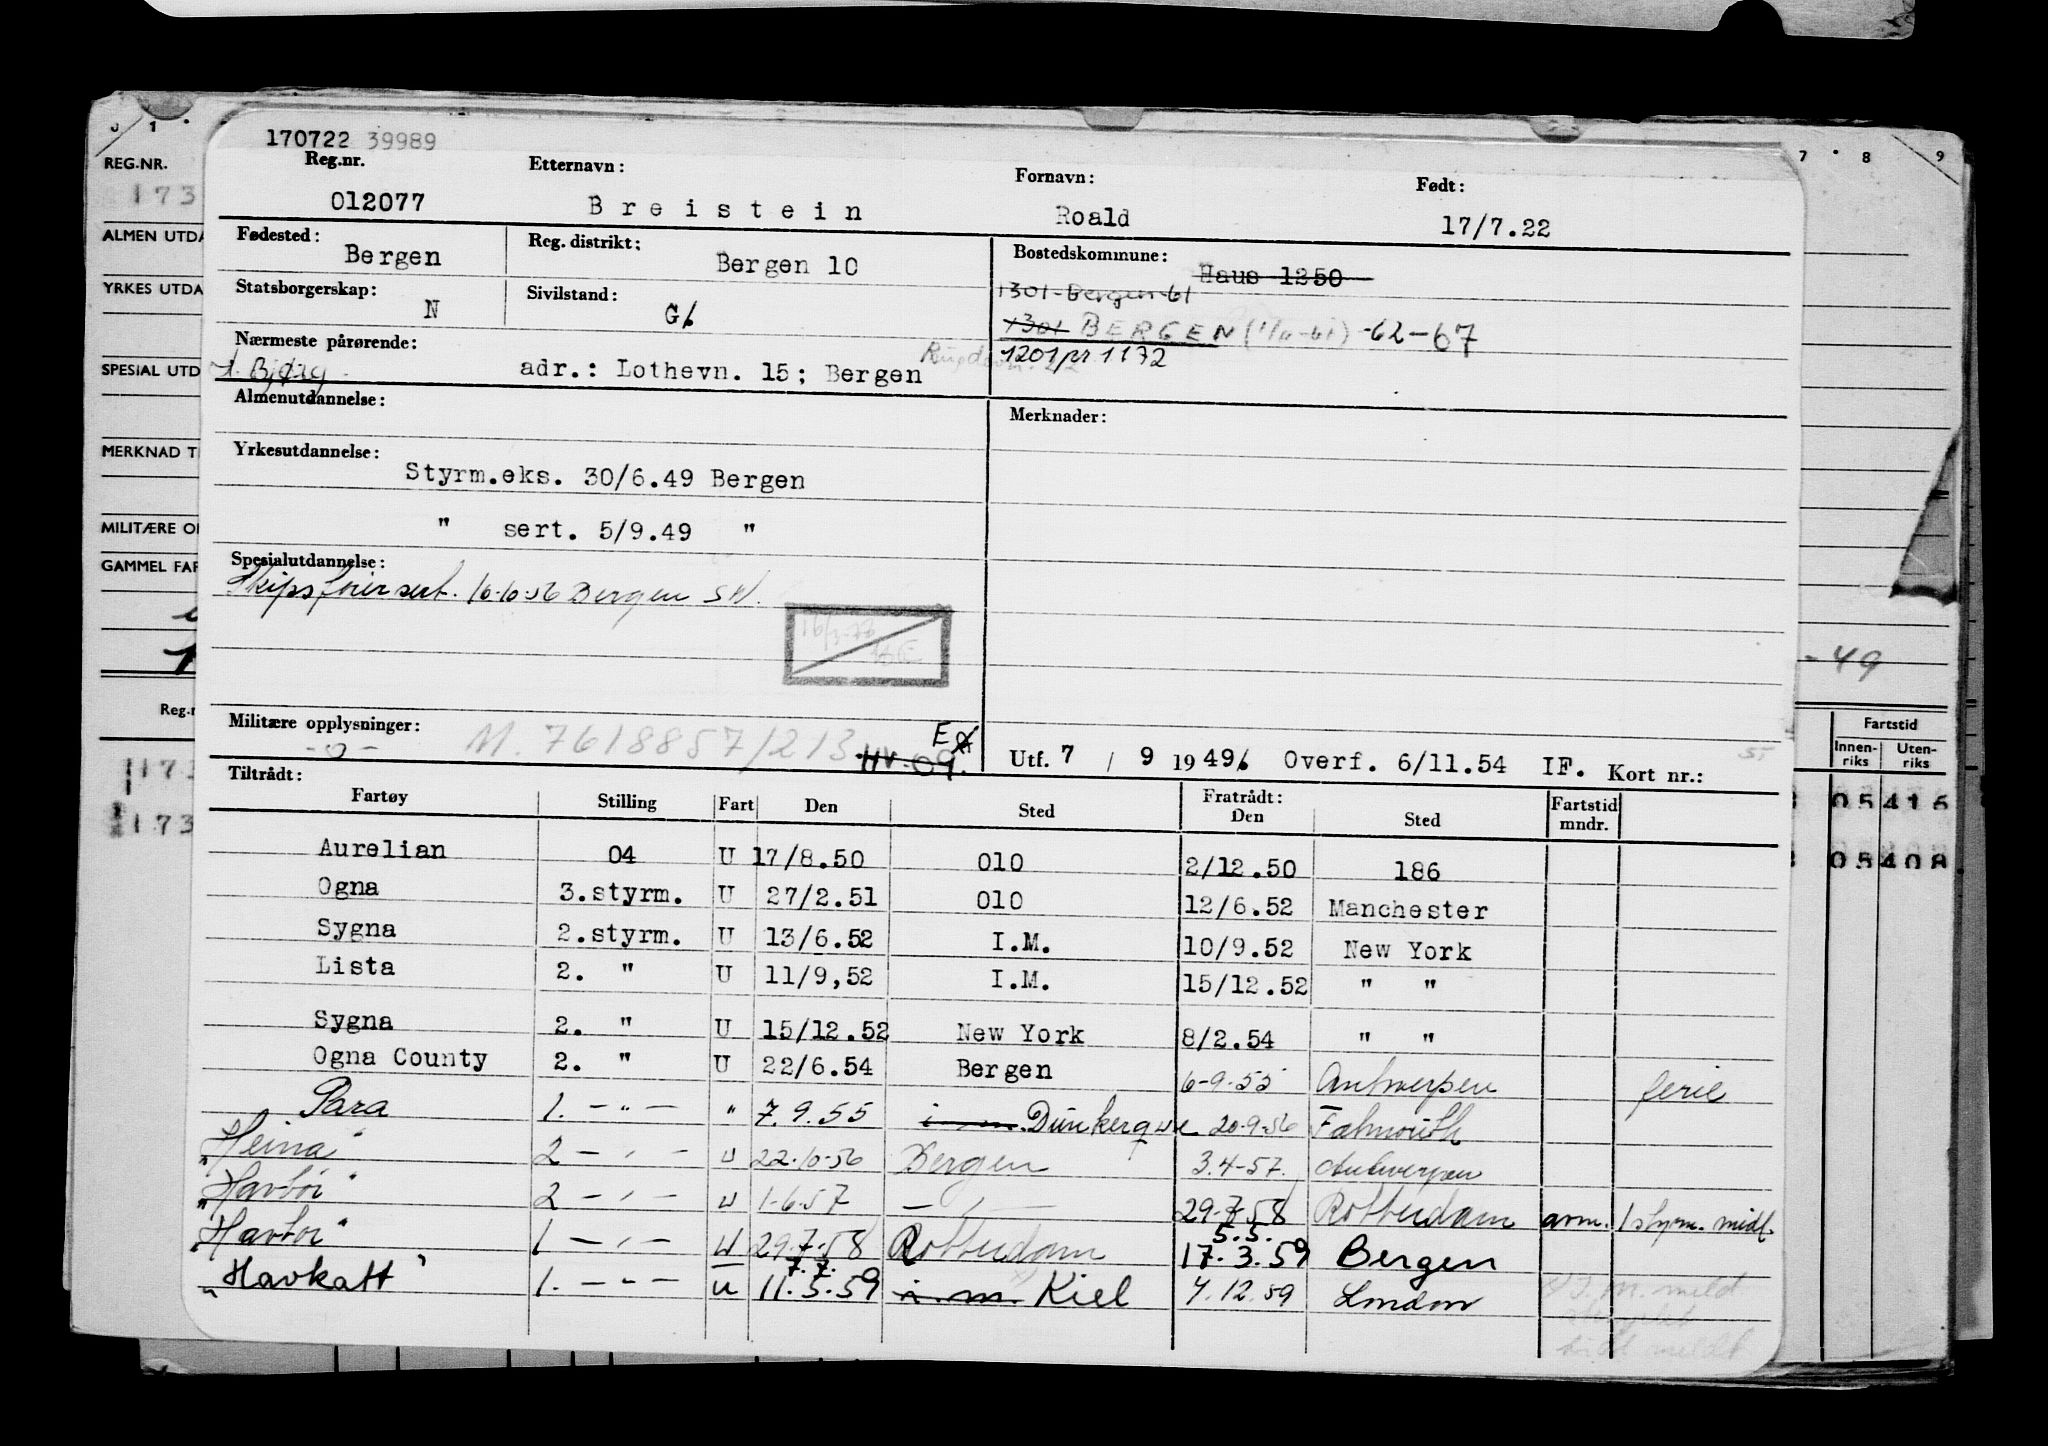 170722 39989
Reg.nr. Etternavn: Fornavn: Født:
012077 Breistein Roald 17/7.22
Fødested: Bergen Reg. distrikt: Bergen 10 Bostedskommune: Haus 1250
1301-Bergen-61
Statsborgerskap: N Sivilstand: G6
1301 BERGEN -62-67
Nærmeste pårørende: 1201 pr 1172
Bjørg adr.: Lothevn. 15; Bergen
Almenutdannelse: Merknader:
Yrkesutdannelse:
Styrm.eks. 30/6.49 Bergen
" sert. 5/9.49 "
Spesialutdannelse:
Skipsførersert. 10-10-56 Bergen
Militære opplysninger: M. 7618857/213 HV-09.
Utf. 7 / 9 1949 Overf. 6/11.54 IF. Kort nr.:
Tiltrådt: Fratrådt:
Fartøy Stilling Fart Den Sted Den Sted Fartstid mndr.
Aurelian 04 U 17/8.50 010 2/12.50 186
Ogna 3.styrm. U 27/2.51 010 12/6.52 Manchester
Sygna 2.styrm. U 13/6.52 I.M. 10/9.52 New York
Lista 2. " U 11/9,52 I.M. 15/12.52 " "
Sygna 2. " U 15/12.52 New York 8/2.54 " "
Ogna County 2. " U 22/6.54 Bergen 6-9-55 Antwerpen ferie
Para 1. -"- " 7.9.55 Dunkerque 20-9-56 Falmouth
"Heina" 2 -"- u 22-10-56 Bergen 3.4-57. Antwerpen
"Havbør" 2 -"- u 1-6-57 -"- 29-7-58 Rotterdam avm. 1 styrm. midl.
"Havbør" 1 -"- u 29-7-58 Rotterdam 5.5. 17.3.59 Bergen
"Havkatt" 1. -"- u 7.7. 11.5.59 i. m. Kiel 4.12.59 London
REG.NR.
173
ALMEN UTDA
YRKES UTDA
SPESIAL UTD
MERKNAD T
MILITÆRE O
GAMMEL FAR
Reg.n
173
173
7 8 9
-49
Fartstid
Innen-riks Uten-riks
05 416
05 408